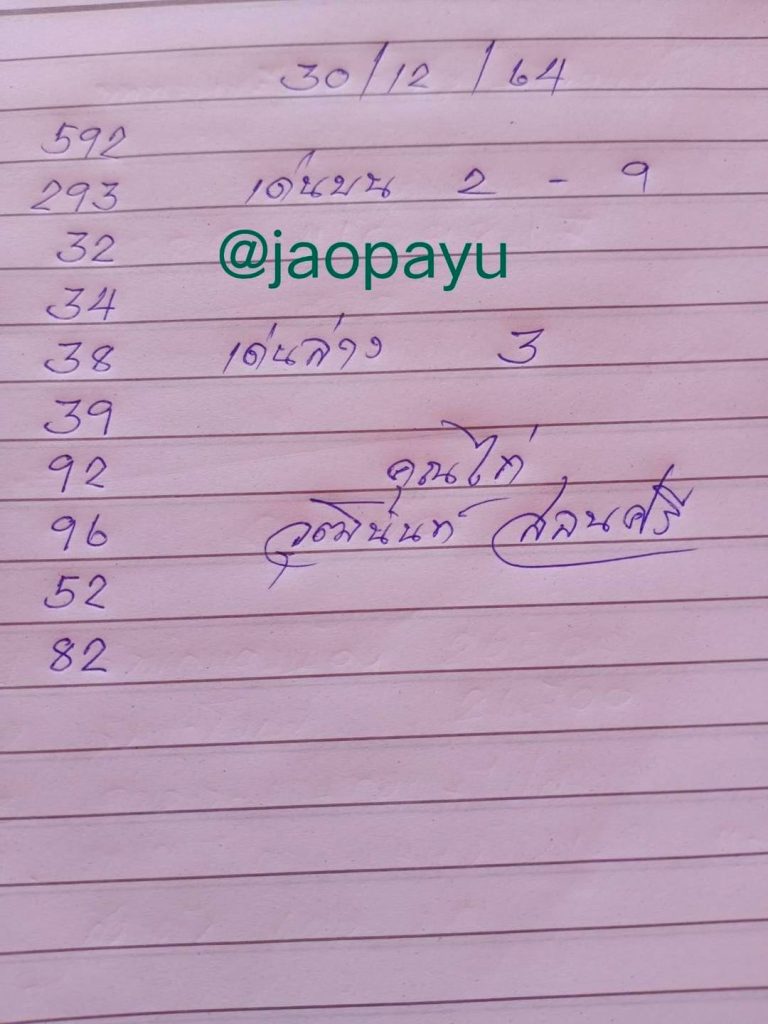 30/12/64
592
293 เด่นบน 2 - 9
32 @jaopayu
34
38 เด่นล่าง 3
39
92 คุณไก่
96 วุฒินันท์ สอนศรี
52
82